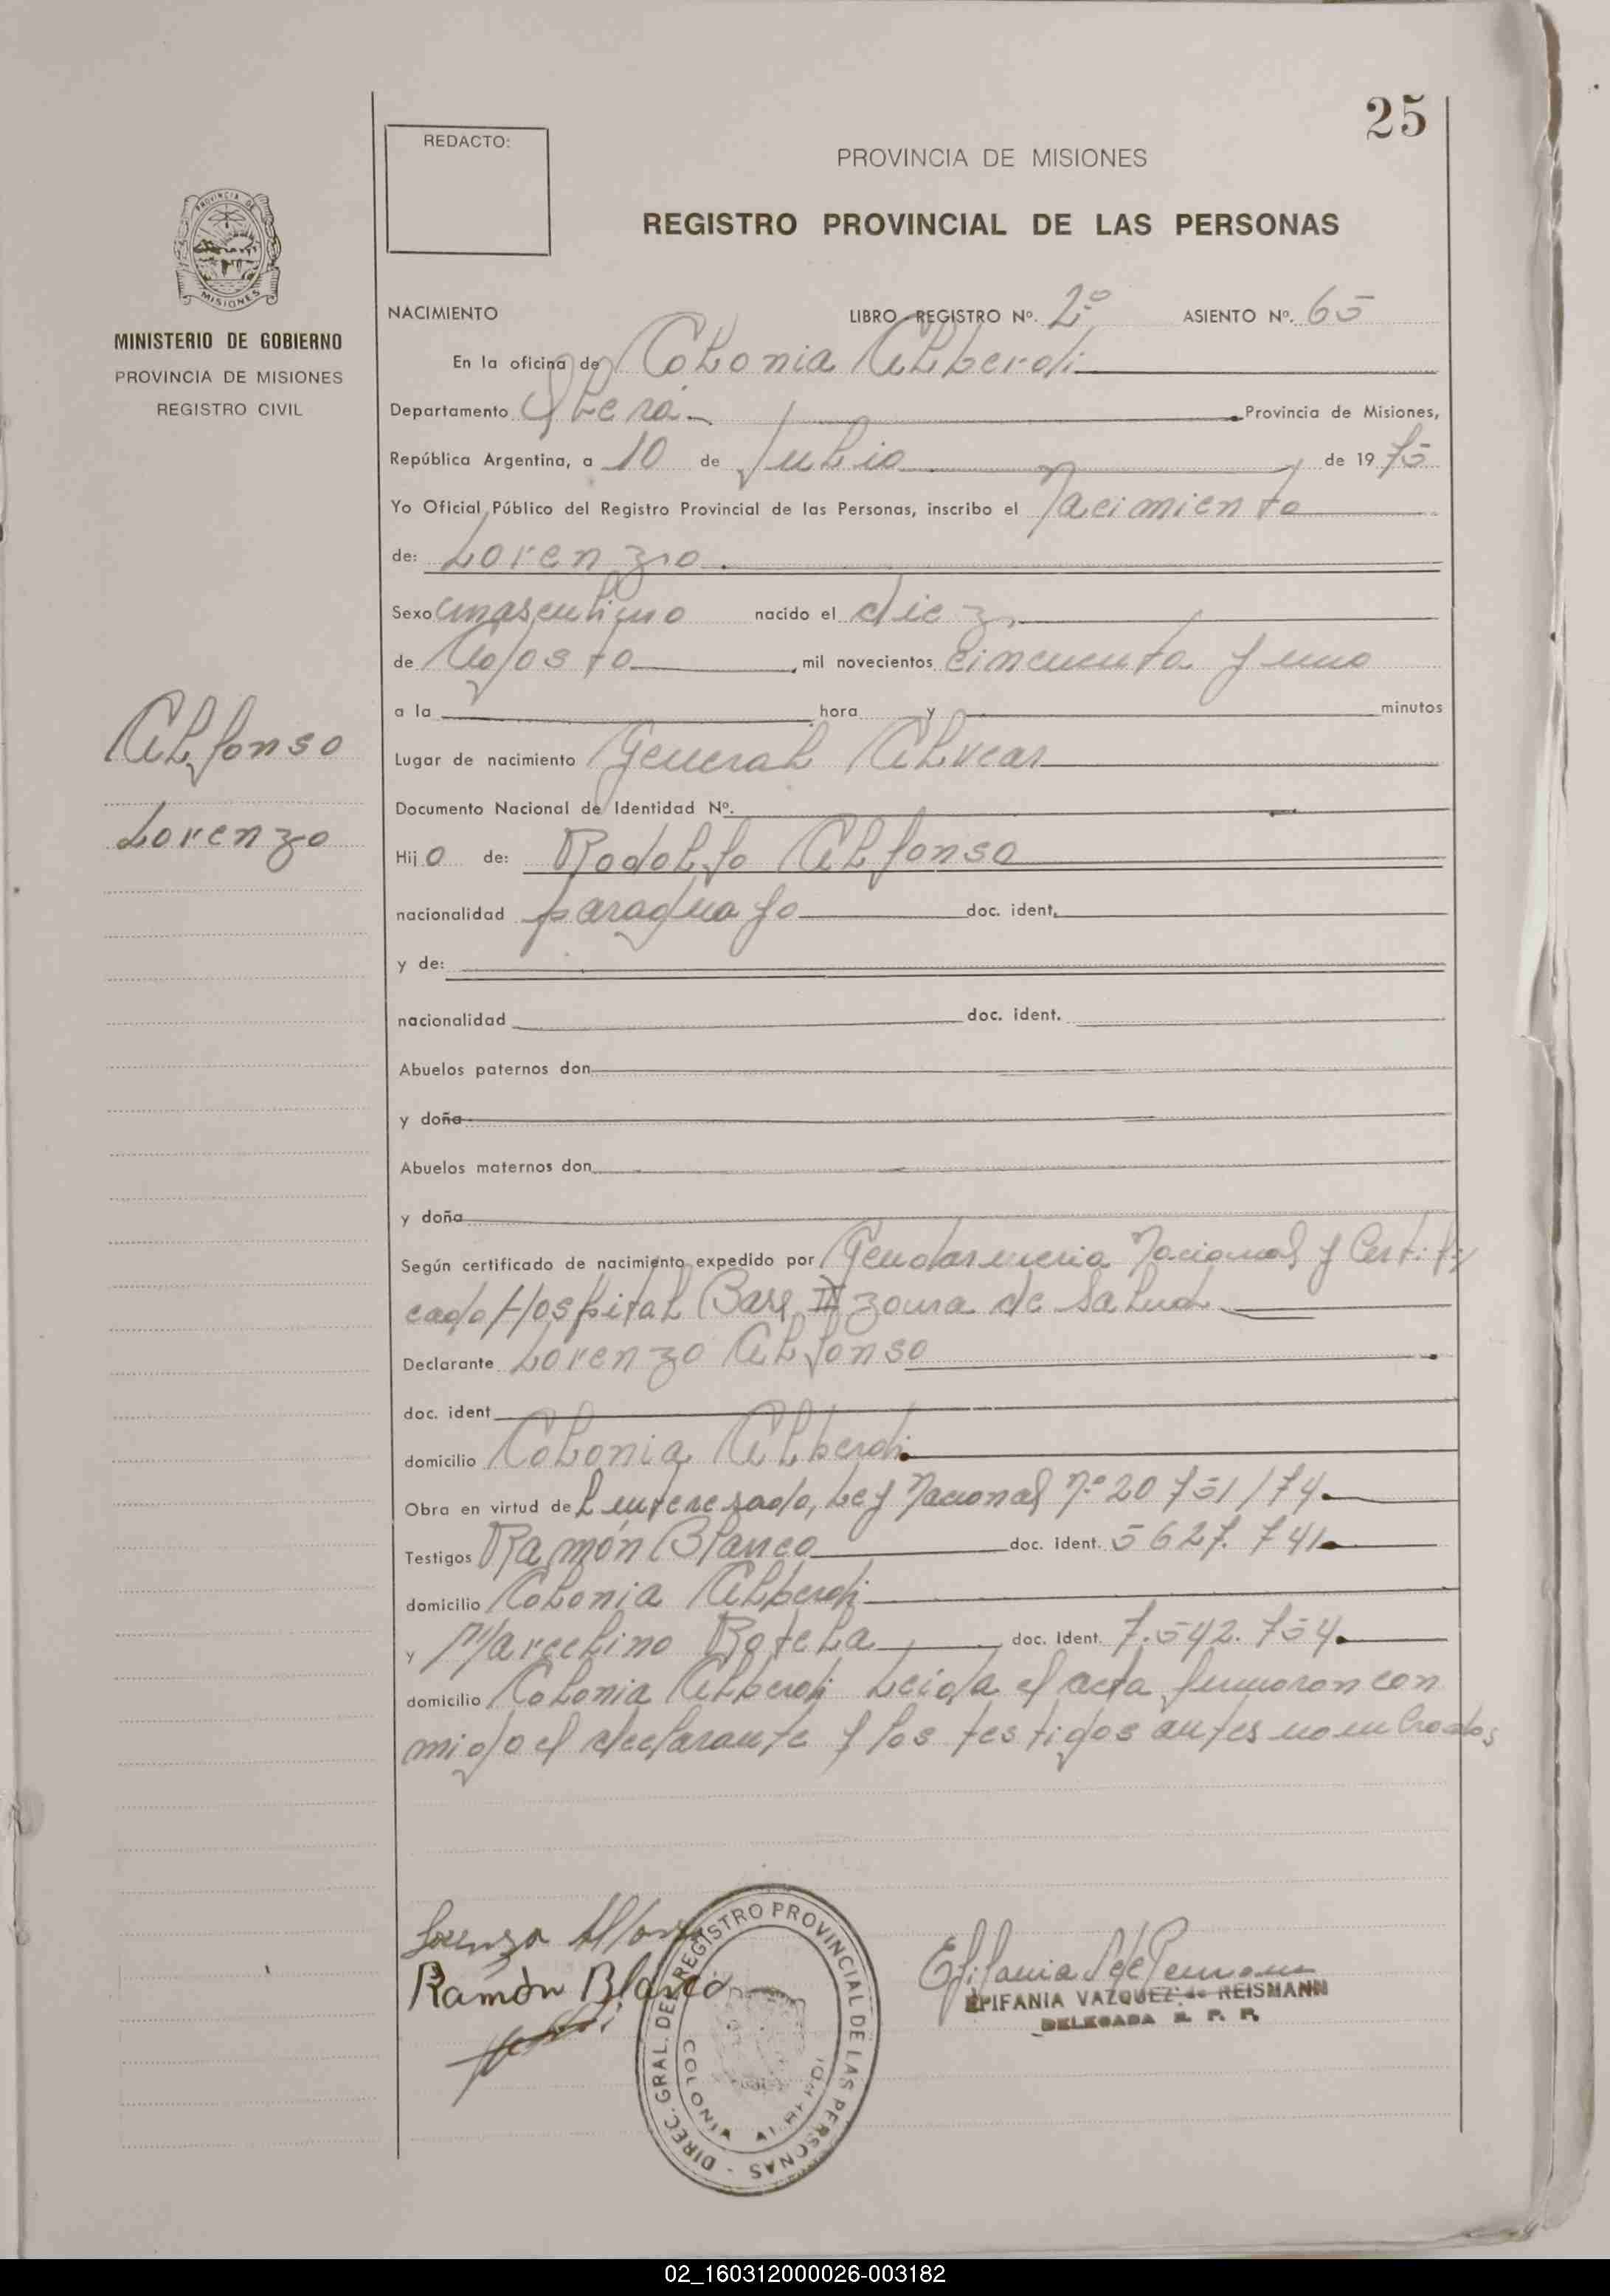 25
REDACTO:
PROVINCIA DE MISIONES
REGISTRO PROVINCIAL DE LAS PERSONAS
PROVINCIA DE
MISIONES
MINISTERIO DE GOBIERNO
PROVINCIA DE MISIONES
REGISTRO CIVIL
NACIMIENTO LIBRO - REGISTRO Nº. 2º ASIENTO Nº. 65
En la oficina de Colonia Alberdi
Departamento Oberá. Provincia de Misiones,
República Argentina, a 10 de Julio de 19 75
Yo Oficial Público del Registro Provincial de las Personas, inscribo el Nacimiento
de: Lorenzo.
Sexo masculino nacido el diez
de Agosto, mil novecientos cincuenta y uno
a la hora y minutos
Alfonso
Lorenzo
Lugar de nacimiento General Alvear
Documento Nacional de Identidad Nº.
Hijo de: Rodolfo Alfonso
nacionalidad paraguayo doc. ident.
y de:
nacionalidad doc. ident.
Abuelos paternos don
y doña
Abuelos maternos don
y doña
Según certificado de nacimiento expedido por Gendarmeria Nacional y Certifi
cado Hospital Base III zona de Salud
Declarante Lorenzo Alfonso
doc. ident
domicilio Colonia Alberdi.
Obra en virtud de Ley Nacional nº 20751/74.
Testigos Ramón Blanco doc. ident. 5627.741.
domicilio Colonia Alberdi
y Marcelino Rotela doc. Ident. 7.542.754.
domicilio Colonia Alberdi Leida el acta firmaron con
migo el declarante y los testigos antes nombrados
Lorenzo Alfonso
Ramón Blanco
DIREC. GRAL. DEL REGISTRO PROVINCIAL DE LAS PERSONAS -
COLONIA ALBERDI
EPIFANIA VAZQUEZ de REISMANN
DELEGADA R. P. P.
02_160312000026-003182